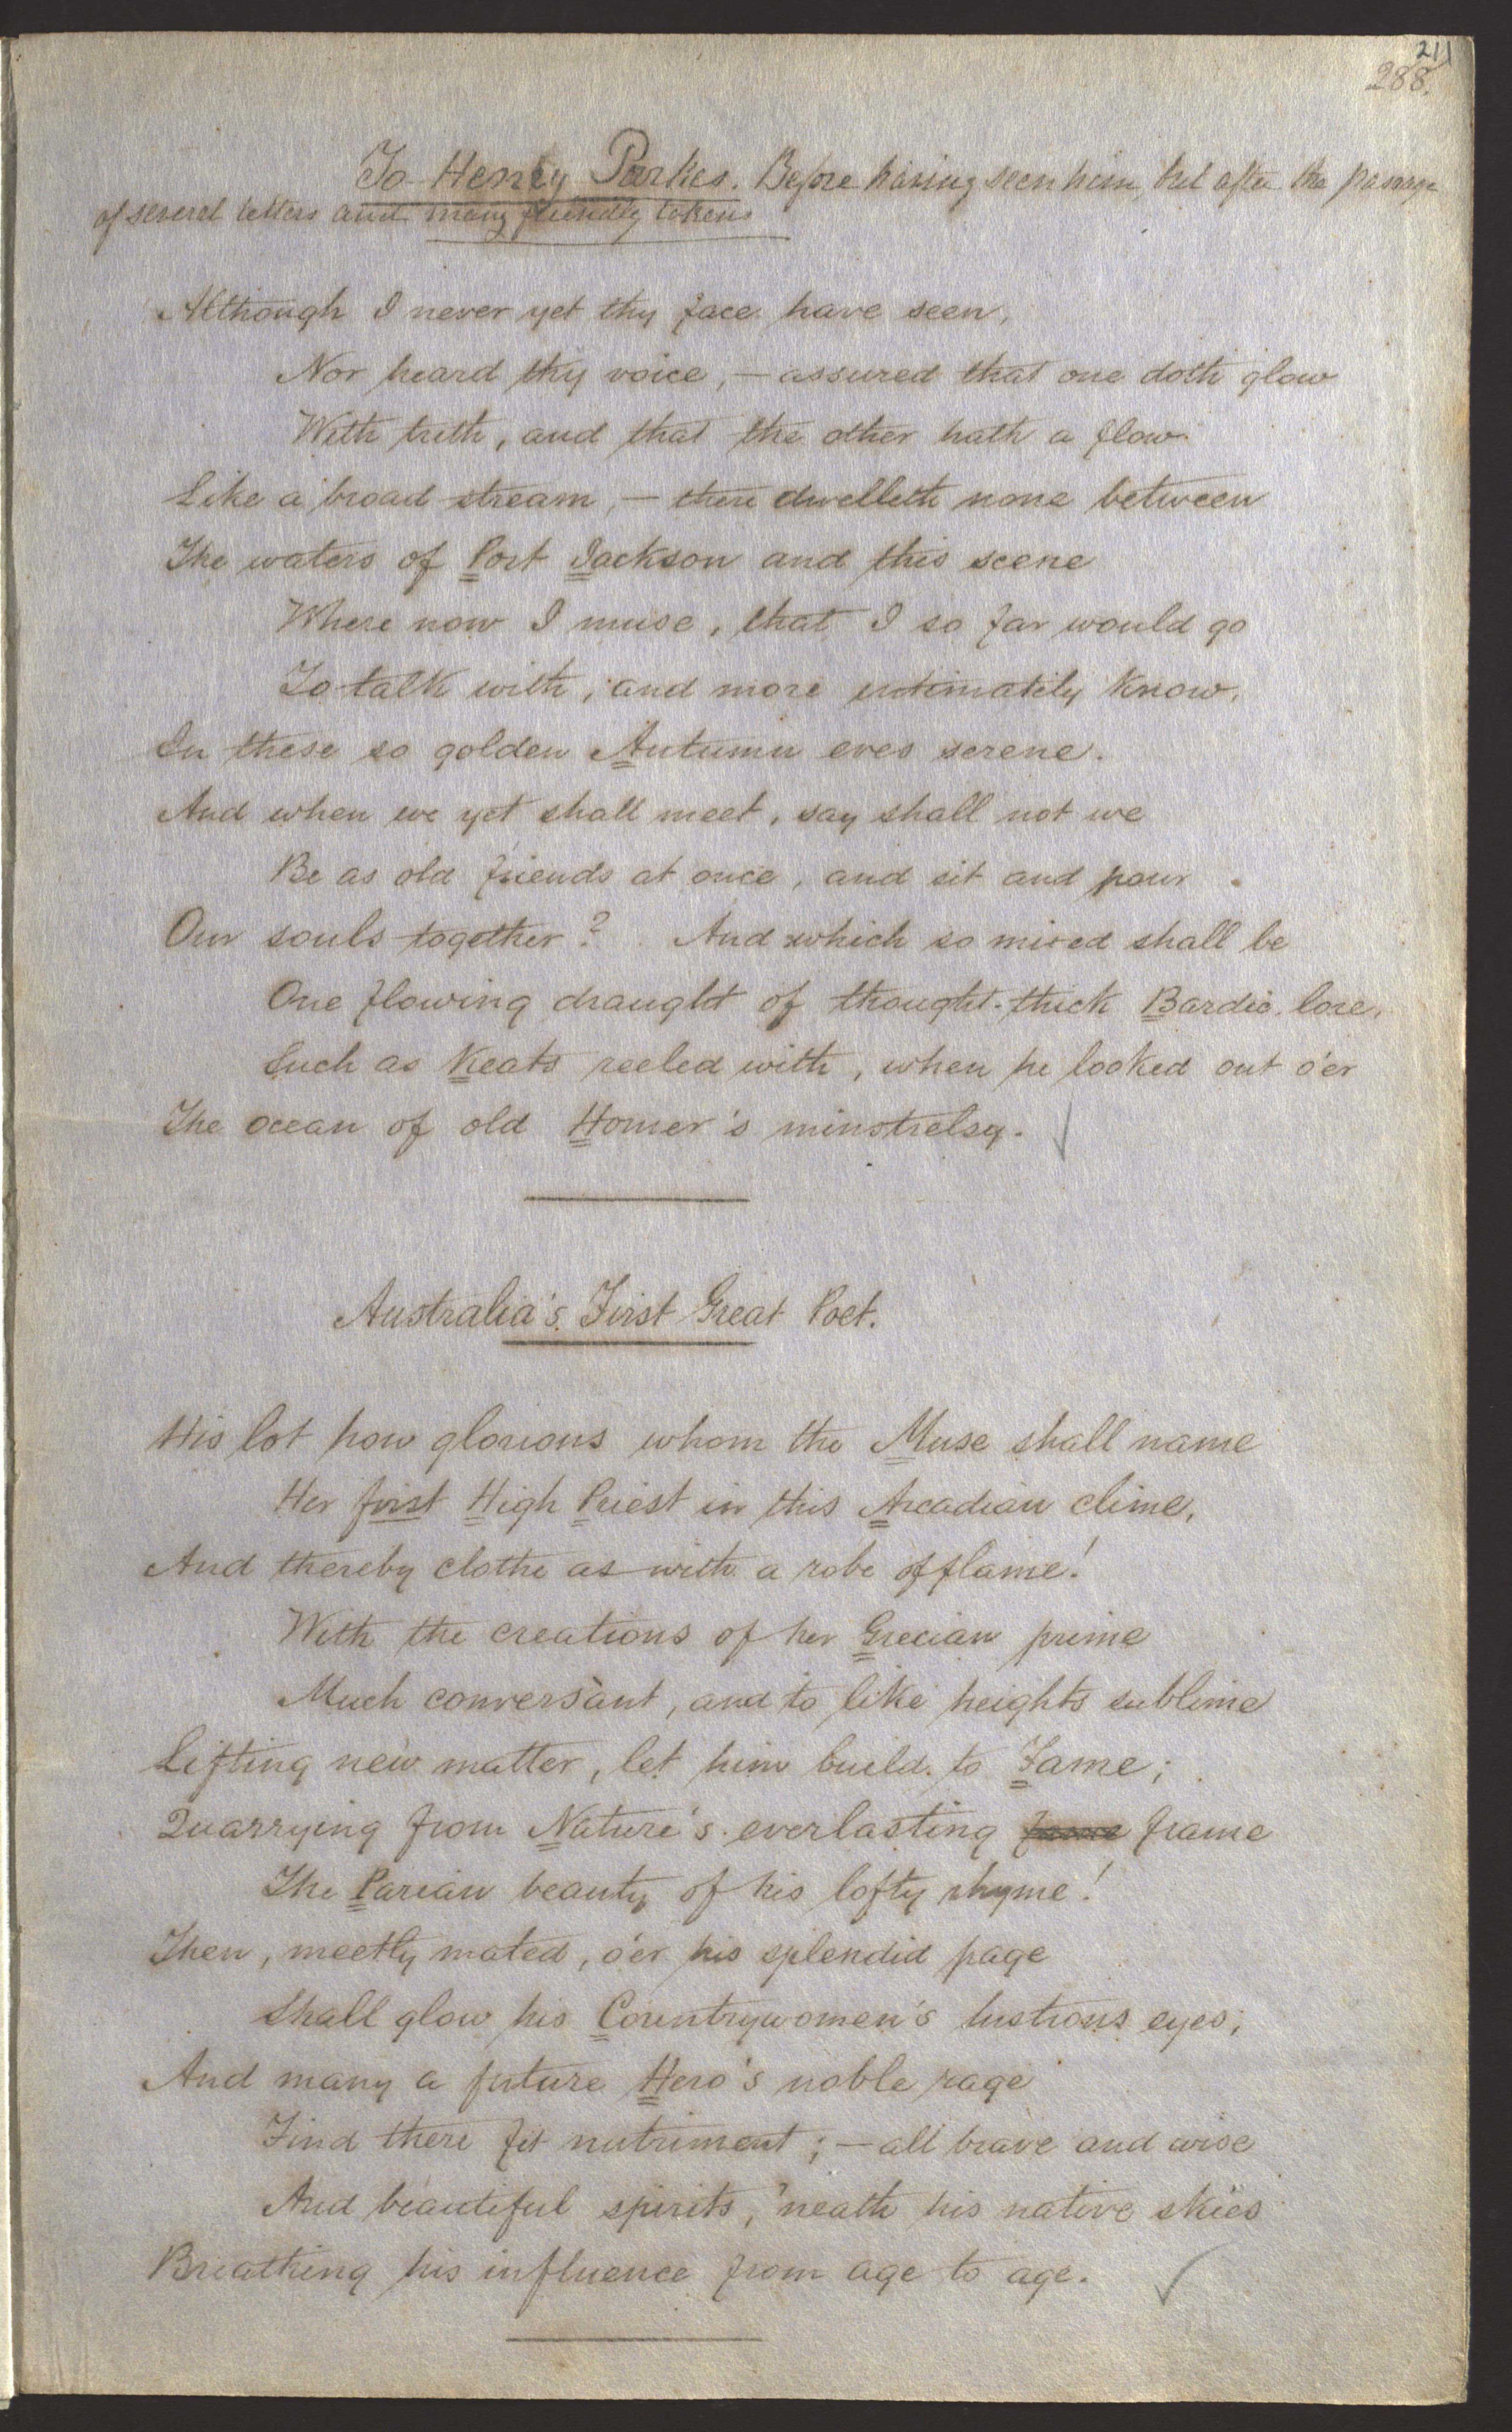 211
288.
To Henry Parkes. Before having seen him, but after the passage
of several letters and many friendly tokens
Although I never yet thy face have seen,
Nor heard thy voice, — assured that one doth glow
With truth, and that the other hath a flow
Like a broad stream, — there dwelleth none between
The waters of Port Jackson and this scene
Where now I muse, that I so far would go
To talk with, and more intimately know,
In these so golden Autumn eves serene.
And when we yet shall meet, say shall not we
Be as old friends at once, and sit and pour
Our souls together? And which so mixed shall be
One flowing draught of thought-thick Bardic lore,
Such as Keats reeled with, when he looked out o'er
The ocean of old Homer's minstrelsy.
Australia's First Great Poet.
His lot how glorious whom the Muse shall name
Her first High Priest in this Arcadian clime,
And thereby clothe as with a robe of flame!
With the creations of her Grecian prime
Much conversant, and to like heights sublime
Lifting new matter, let him build to Fame;
Quarrying from Nature's everlasting frame
The Parian beauty of his lofty rhyme!
Then, meetly mated, o'er his splendid page
Shall glow his Countrywomen's lustrous eyes;
And many a future Hero's noble rage
Find there fit nutriment; — all brave and wise
And beautiful spirits, 'neath his native skies
Breathing his influence from age to age.